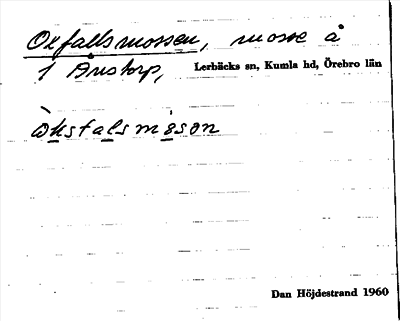 Oxfallsmossen, mosse å
1 Ånstorp, Lerbäcks sn, Kumla hd, Örebro län
Dan Höjdestrand 1960